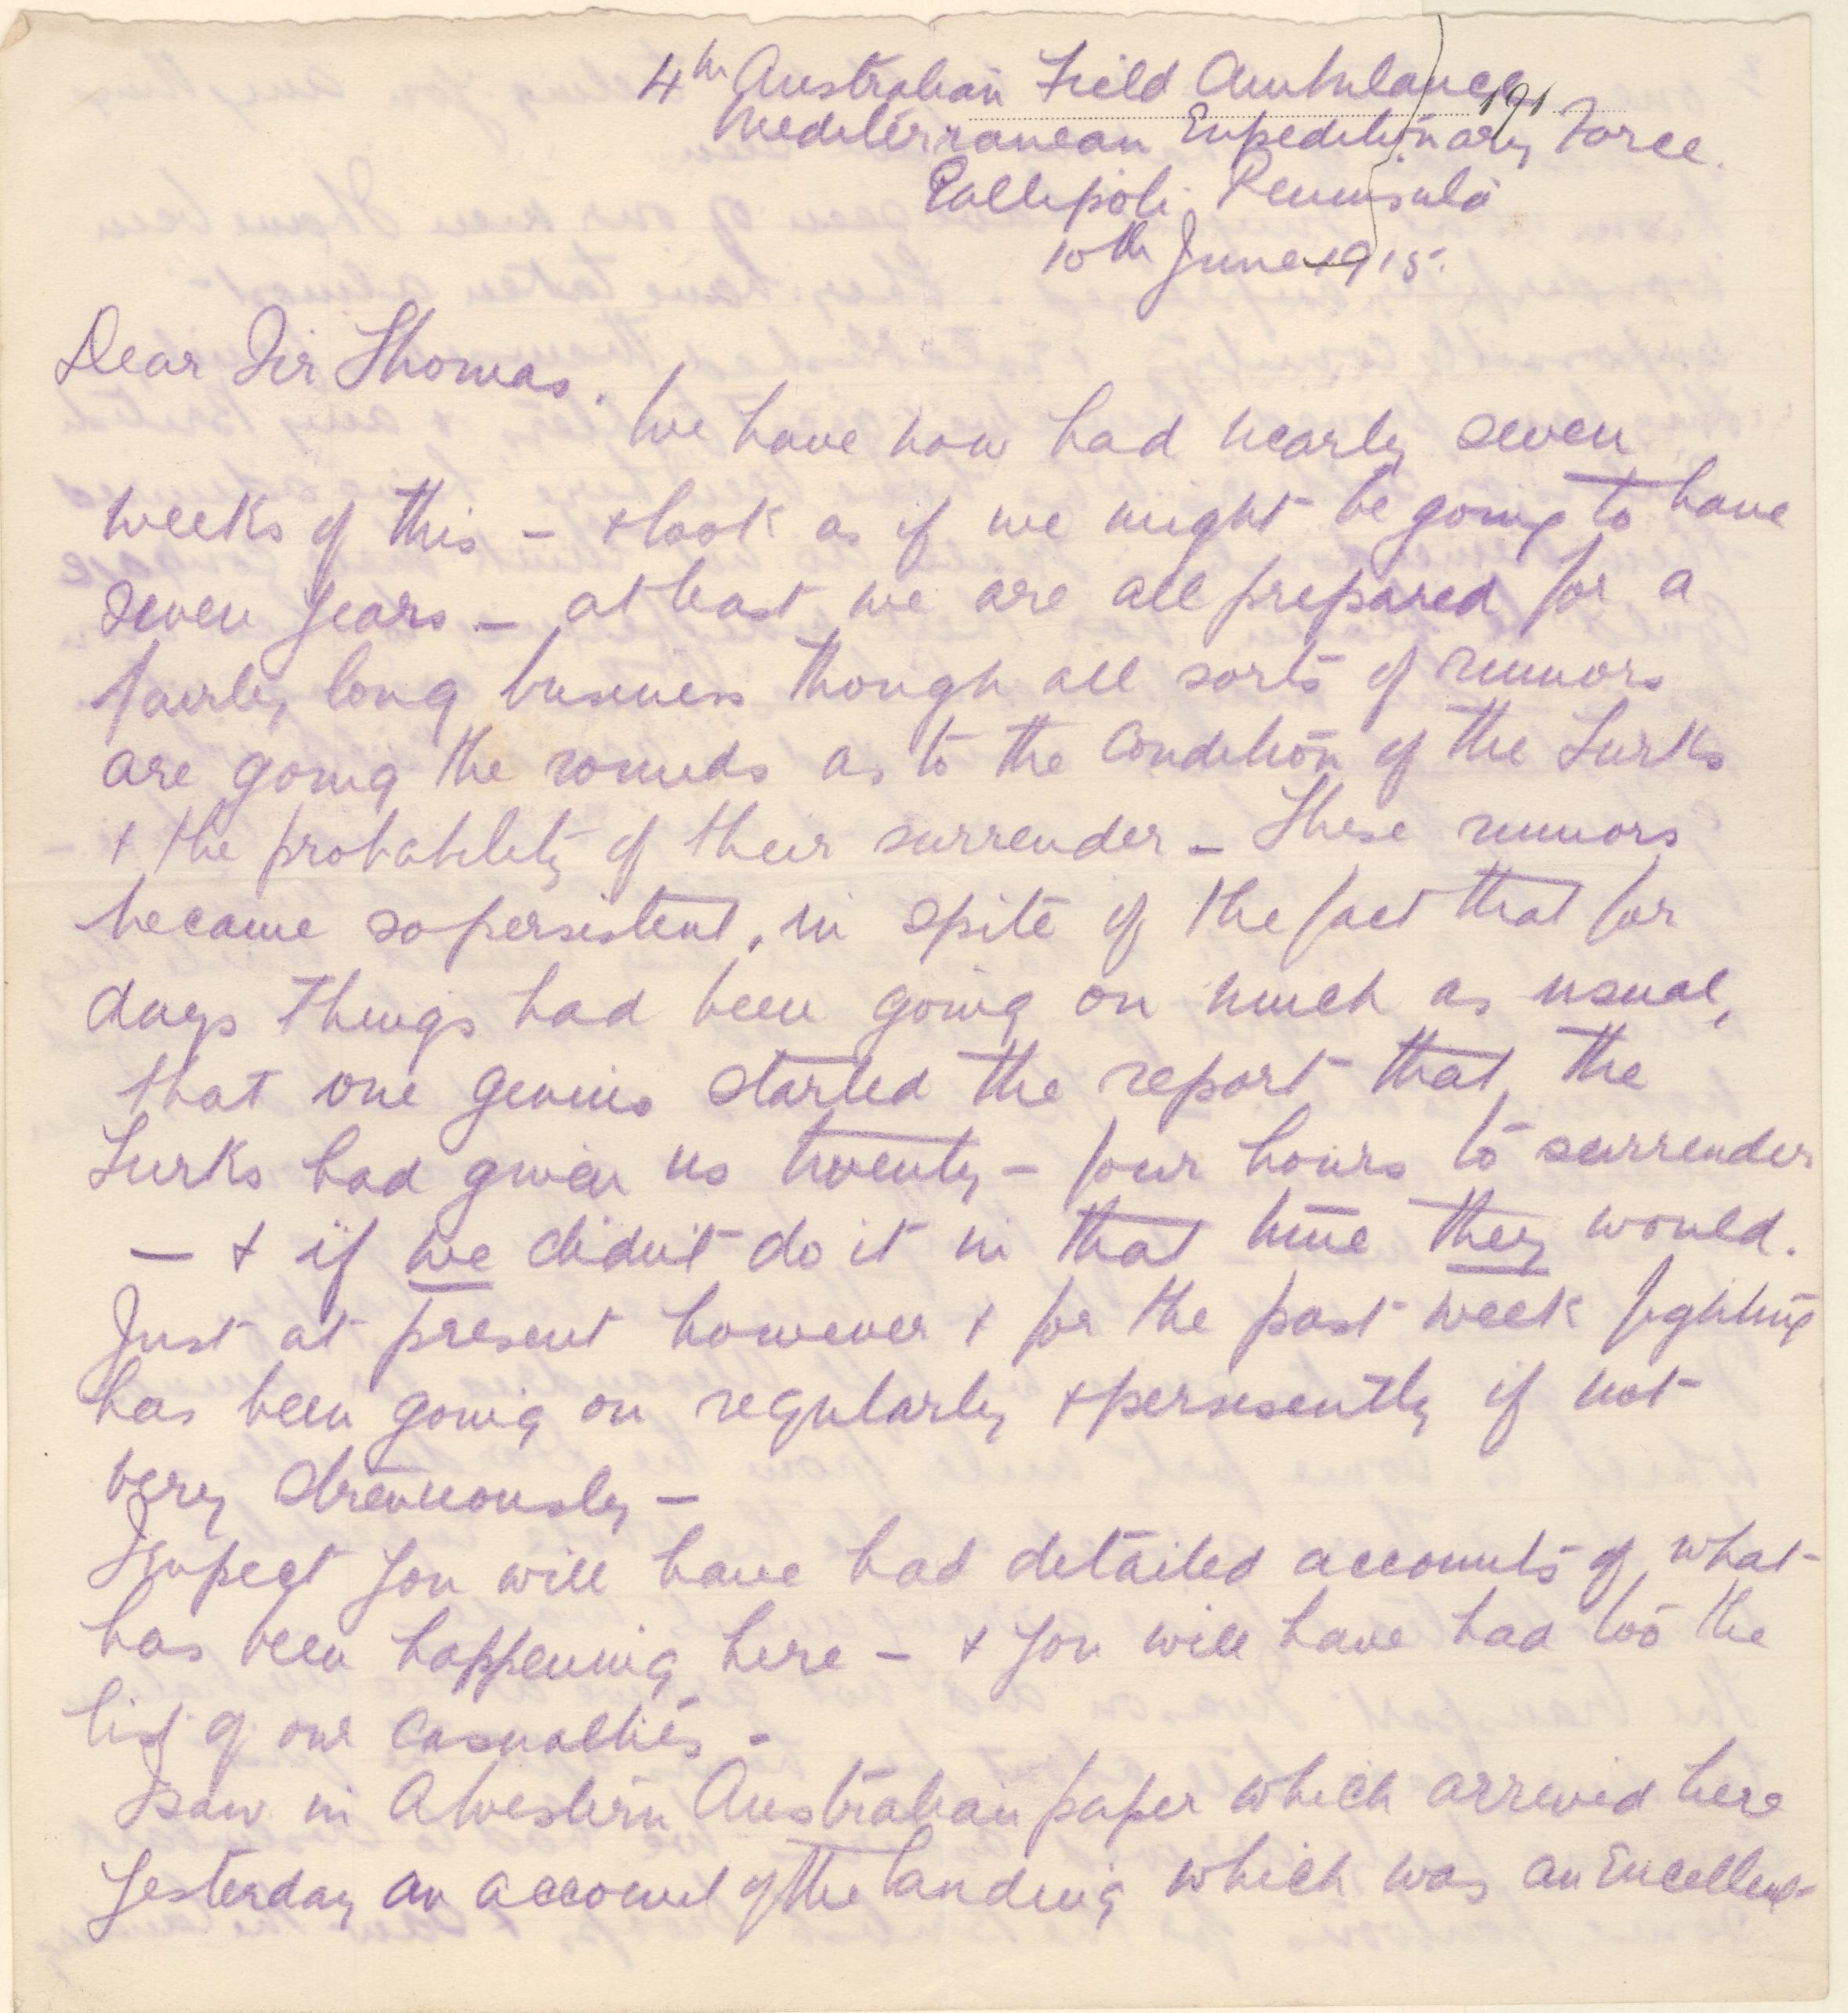 4th Australian Field Ambulance
191
Mediterranean Expeditionary Force.
Gallipoli Peninsula
10th June 1915.
Dear Sir Thomas.
We have now had nearly seven
weeks of this – & look as if we might be going to have
seven years – at least we are all prepared for a
fairly long business though all sorts of rumors
are going the rounds as to the condition of the Turks
& the probability of their surrender – These rumors
became so persistent, in spite of the fact that for
days things had been going on much as usual,
that one genius started the report that the
Turks had given us twenty – four hours to surrender
– & if we didn't do it in that time they would.
Just at present however & for the past week fighting
has been going on regularly & persisently if not
very strenuously –
I expect you will have had detailed accounts of what
has been happening here – & you will have had too the
list of our casualties –
I saw in a Western Australian paper which arrived here
yesterday an account of the landing which was an excellent